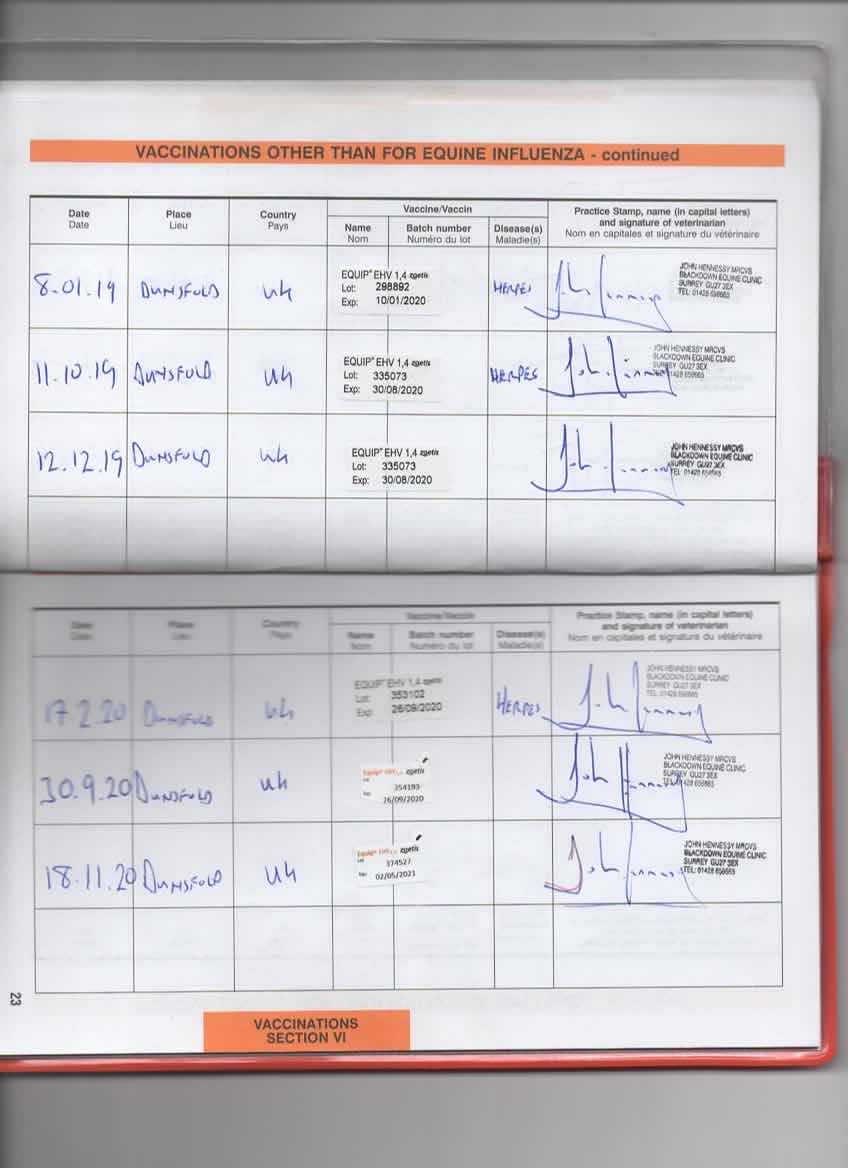 VACCINATIONS OTHER THAN FOR EQUINE INFLUENZA - continued
Date Place Country Vaccine/Vaccin Practice Stamp, name (in capital letters)
Date Lieu Pays Name Batch number Disease(s) and signature of veterinarian
Nom Numéro du lot Maladie(s) Nom en capitales et signature du vétérinaire
8.01.19 DUNSFOLD UK EQUIP EHV 1,4 zoetis HERPES JOHN HENNESSY MRCVS
Lot: 298892 BLACKDOWN EQUINE CLINIC
Exp: 10/01/2020 SURREY GU27 3EX
TEL: 01428
11.10.19 DUNSFOLD UK EQUIP EHV 1,4 zoetis HERPES JOHN HENNESSY MRCVS
Lot: 335073 BLACKDOWN EQUINE CLINIC
Exp: 30/08/2020 SURREY GU27 3EX
12.12.19 DUNSFOLD UK EQUIP EHV 1,4 zoetis JOHN HENNESSY MRCVS
Lot: 335073 BLACKDOWN EQUINE CLINIC
Exp: 30/08/2020 SURREY GU27 3EX
Date Place Country Vaccine/Vaccin Practice Stamp, name (in capital letters)
Date Lieu Pays Name Batch number Disease(s) and signature of veterinarian
Nom Numéro du lot Maladie(s) Nom en capitales et signature du vétérinaire
17.2.20 DUNSFOLD UK EQUIP EHV 1,4 zoetis HERPES JOHN HENNESSY MRCVS
Lot: 353102 BLACKDOWN EQUINE CLINIC
Exp: 26/09/2020 SURREY GU27 3EX
30.9.20 DUNSFOLD UK Equip zoetis JOHN HENNESSY MRCVS
354193 BLACKDOWN EQUINE CLINIC
26/09/2020 SURREY GU27 3EX
18.11.20 DUNSFOLD UK Equip zoetis JOHN HENNESSY MRCVS
374527 BLACKDOWN EQUINE CLINIC
02/05/2021 SURREY GU27 3EX
TEL: 01428
23
VACCINATIONS
SECTION VI